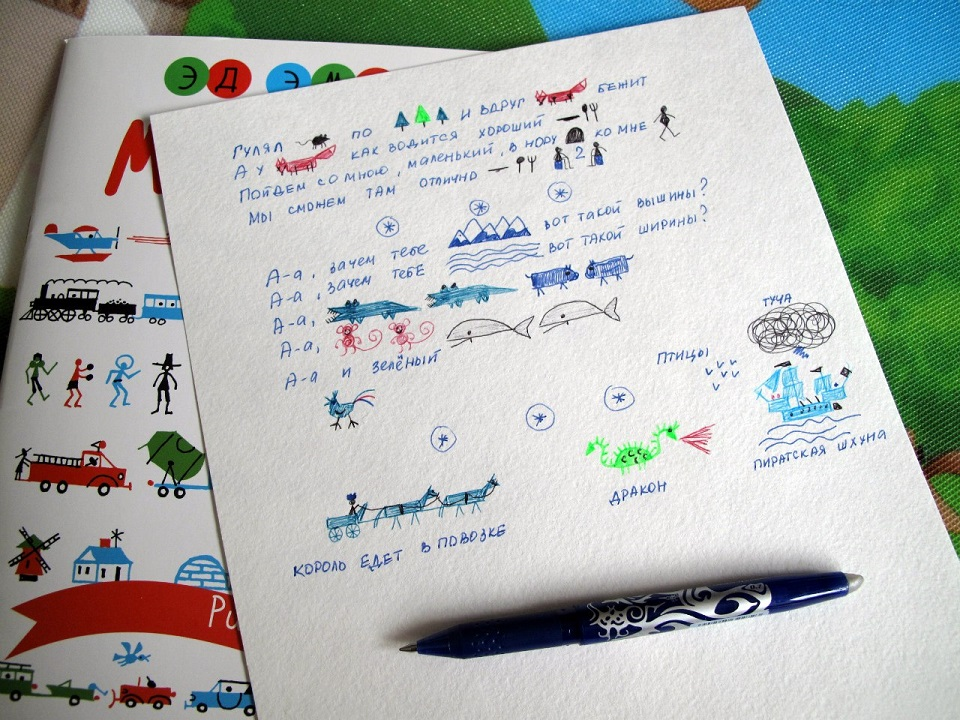 ЭД ЭМ
ГУЛЯЛ ПО И ВДРУГ БЕЖИТ
А У КАК ВОДИТСЯ ХОРОШИЙ
ПОЙДЕМ СО МНОЮ, МАЛЕНЬКИЙ, В НОРУ КО МНЕ
МЫ СМОЖЕМ ТАМ ОТЛИЧНО 2
А-а, зачем тебе вот такой вышины?
А-а, зачем ТЕБЕ вот такой ширины?
А-а,
А-а,
А-а и зелёный
ТУЧА
ПТИЦЫ
ПИРАТСКАЯ ШХУНА
ДРАКОН
КОРОЛЬ ЕДЕТ В ПОВОЗКЕ